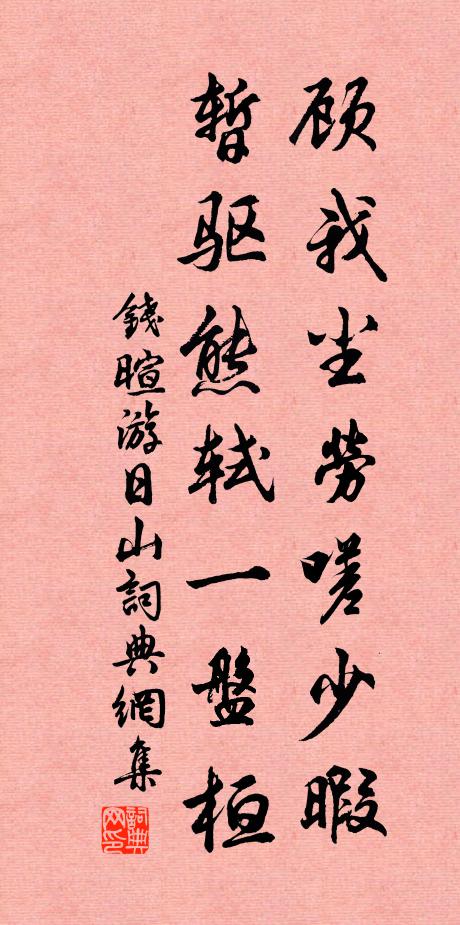 顾我尘劳嗟少暇
暂驱熊轼一盘桓
錢暄游日山詞典網集
詞典网印